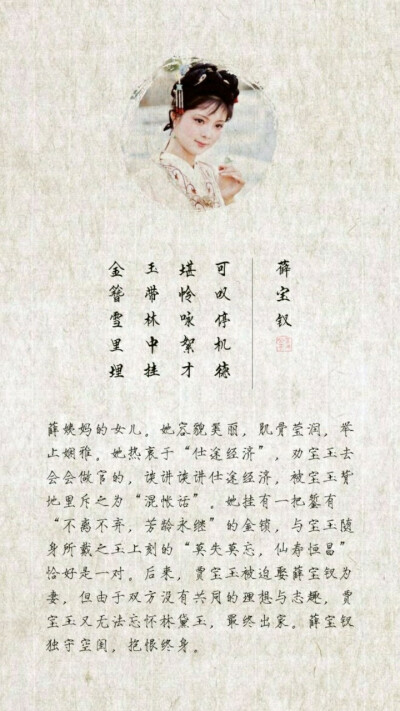 薛宝钗
可叹停机德
堪怜咏絮才
玉带林中挂
金簪雪里埋
薛姨妈的女儿。她容貌美丽，肌骨莹润，举
止娴雅。她热衷于“仕途经济”，劝宝玉去
会会做官的，谈讲谈讲仕途经济，被宝玉背
地里斥之为“混帐话”。她挂有一把錾有
“不离不弃，芳龄永继”的金锁，与宝玉随
身所戴之玉上刻的“莫失莫忘，仙寿恒昌”
恰好是一对。后来，贾宝玉被迫娶薛宝钗为
妻，但由于双方没有共同的理想与志趣，贾
宝玉又无法忘怀林黛玉，最终出家。薛宝钗
独守空闺，抱恨终身。